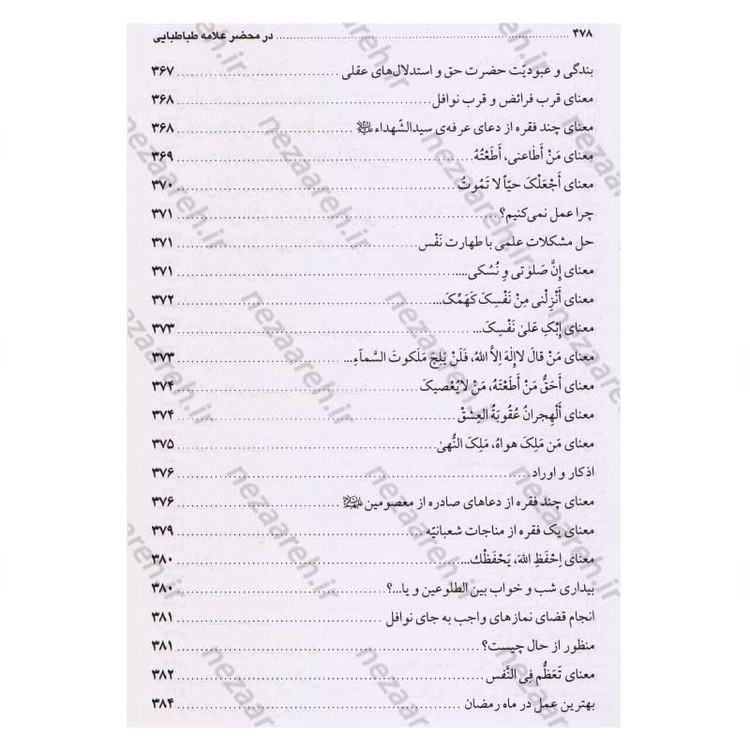 ۴۷۸ ........ در محضر علامه طباطبایی
بندگی و عبودیّت حضرت حق و استدلال‌های عقلی ........ ۳۶۷
معنای قرب فرائض و قرب نوافل ........ ۳۶۸
معنای چند فقره از دعای عرفه‌ی سیدالشّهداء ........ ۳۶۸
معنای مَنْ أَطاعنی، أَطَعْتُهُ ........ ۳۶۹
معنای أَجْعَلْکَ حیّاً لا تَموتُ ........ ۳۷۰
چرا عمل نمی‌کنیم؟ ........ ۳۷۱
حل مشکلات علمی با طهارت نَفْس ........ ۳۷۱
معنای إنَّ صَلوٰتی وَ نُسُکی.... ........ ۳۷۱
معنای أَنْزِلْنی مِنْ نَفْسِکَ کَهَمِّکَ... ........ ۳۷۲
معنای اِبْکِ عَلیٰ نَفْسِکَ... ........ ۳۷۳
معنای مَنْ قالَ لااِلٰهَ اِلاَّ اللهُ، فَلَنْ یَلِجَ مَلَکوتَ السَّماءِ... ........ ۳۷۳
معنای أَحَقُّ مَنْ أَطَعْتَهُ، مَنْ لایُعْصیکَ ........ ۳۷۴
معنای أَلْهِجرانُ عُقُوبَةُ العِشقْ ........ ۳۷۴
معنای مَن مَلِکَ هواهُ، مَلِکَ النُّهیٰ ........ ۳۷۵
اذکار و اوراد ........ ۳۷۶
معنای چند فقره از دعاهای صادره از معصومین ........ ۳۷۶
معنای یک فقره از مناجات شعبانیّه ........ ۳۷۹
معنای اِحْفَظِ اللهَ، یَحْفَظْك... ........ ۳۸۰
بیداری شب و خواب بین الطلوعین و یا...؟ ........ ۳۸۰
انجام قضای نمازهای واجب به جای نوافل ........ ۳۸۱
منظور از حال چیست؟ ........ ۳۸۱
معنای تَعَظُّم فِی النَّفس ........ ۳۸۲
بهترین عمل در ماه رمضان ........ ۳۸۴
nezaareh.ir